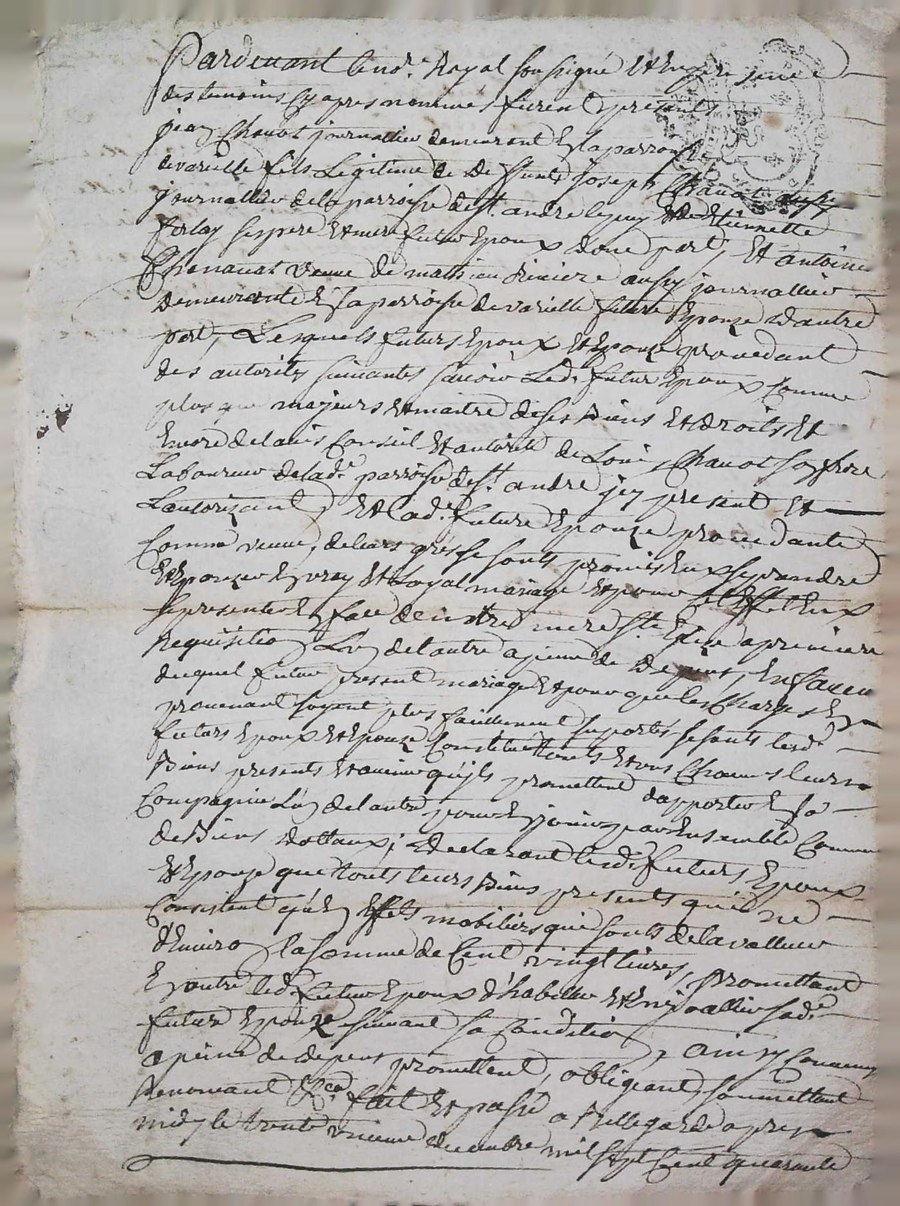 Pardevant le nore Royal soussigné et en presence
des temoins cy apres nommés furent presents
jean Chavot journallier demeurant en la parroisse
de varielle fils Legitime de Deffunts joseph Chavot aussy
journallier de la parroisse de st andre le puy et de Etiennette
forlay ses pere et mere futur Epoux d'une part, Et antoinette
veuve de mathieu aussy journallier
Demeurante en la parroisse de varielle future Epouze d'autre
part, Lesquels futurs Epoux et Epouze procedant
des autorités suivantes scavoir Led. futur Epoux comme
plus que majeurs et maitre de ses Biens et droits Et
Encore de l'avis Conseil et autorité de Louis Chavot son frere
Laboureur de lad. parroisse de st andre jcy present et
L'autorizant, et lad. future Epouze procedante
Comme veuve, de leurs grés se sonts promis Eux prendre
et Epouzer En vray et Loyal mariage et pour Et Effet Eux
se presenter En face de notre mere ste Eglise a premiere
Requisition L'un de l'autre a peine de Depens, En faveur
duquel futur present mariage et pour que les Charges En
provenant soyent plus facillement suportés se sonts lesd.
futurs Epoux et Epouze Constitué touts et uns Chacuns leurs
Biens presents et avenir qu'ils promettent d'apporter En la
Compagnie L'un de l'autre pour En jouir par Ensemble Comme
de Biens dottaux; Declarant lesd. futurs Epoux
et Epouze que touts leurs Biens presents qui ne
Consistent qu'en Effets mobiliers que sonts de la valleur
d'Environ la somme de Cent vingt livres, promettant
En outre led. futur Epoux d'habiller et Enjoallier sad.
future Epouze suivant sa Condition, ainsy Convenu
a peine de depens promettant, obligeant, soumettant
Renonceant &ca. fait et passé a Bellegarde apres
midy le trente unieme decembre mil sept Cent quarante